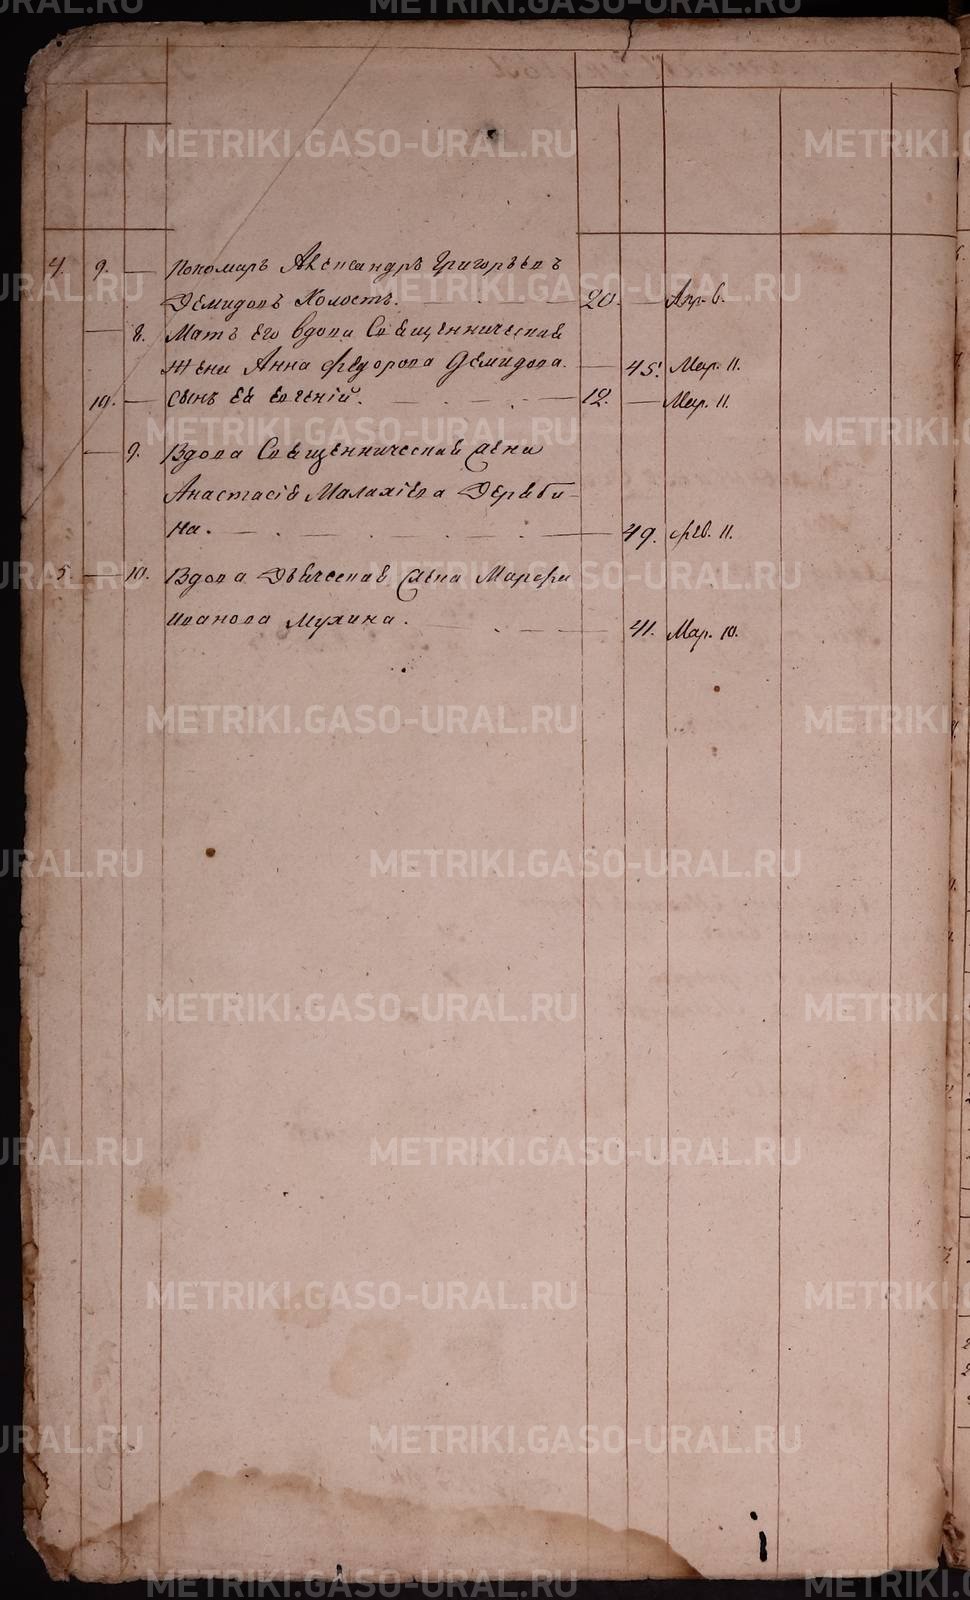 4. 9. — Пономарь Александръ Григорьевъ
Демидовъ Холостъ. — 20. — Апр. 6.
— 8. Мать его вдова Священническая
жена Анна Федорова Демидова. — 45. Мар. 11.
10. — сынъ ея Евгеній. — 12. — Мар. 11.
— 9. Вдова Священническая жена
Анастасія Малахіева Деряби-
на. — 49. Фев. 11.
5. — 10. Вдова Дьяческая жена Марфа
Иванова Мухина. — 41. Мар. 10.
METRIKI.GASO-URAL.RU